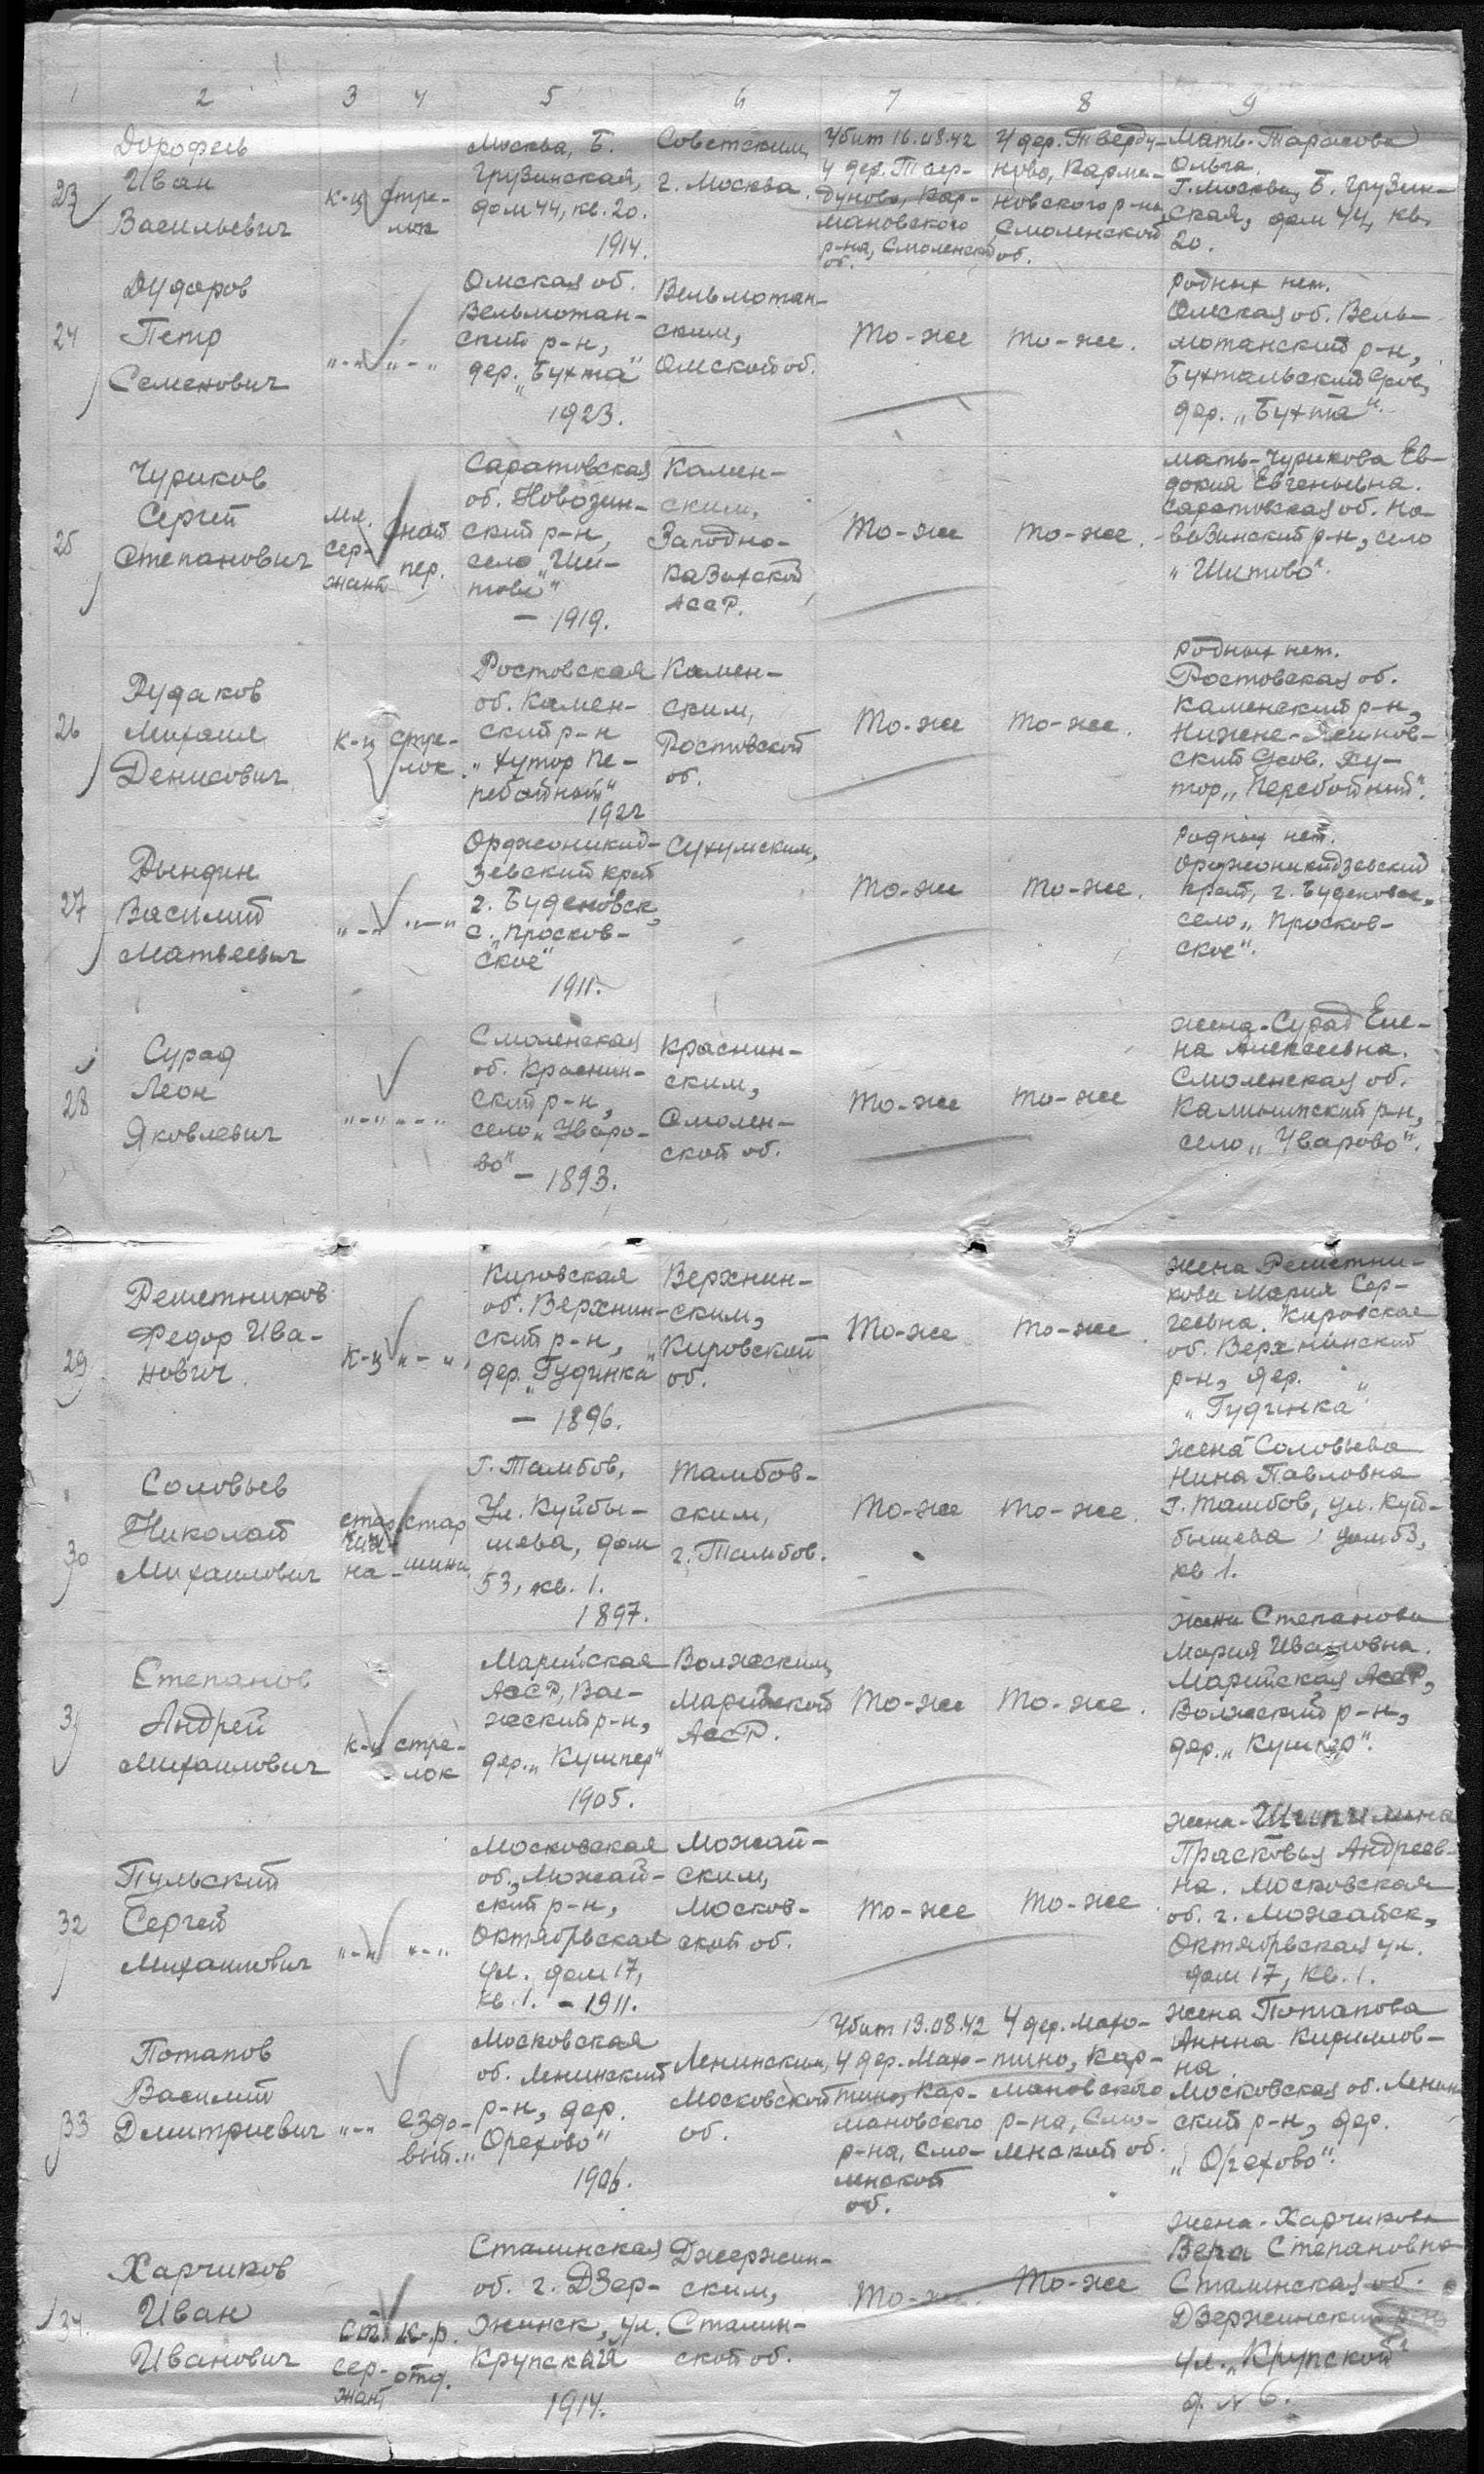 1 2 3 4 5 6 7 8 9
23
Дорофеев
Иван
Васильевич
к-ц
стре-
лок
Москва, Б.
Грузинская,
дом 44, кв. 20.
1914.
Советским,
г. Москва.
Убит 16.08.42
у дер. Твер-
дуново, Кар-
мановского
р-на, Смоленской
об.
У дер. Тверду-
ново, Карма-
новского р-на,
Смоленской
об.
Мать-Тарасова
Ольга.
Г. Москва, Б. Грузин-
ская, дом 44, кв.
20.
24
Дударов
Петр
Семенович
"-" "-"
Омская об.
Вельмотан-
ский р-н,
дер. "Бухта"
1923.
Вельмотан-
ским,
Омской об.
То-же
то-же.
Родных нет.
Омская об. Вель-
мотанский р-н,
Бухтальский с/сов,
дер. "Бухта".
25
Чуриков
Сергей
Степанович
мл.
сер-
жант
пер.
Саратовская
об. Новозен-
ский р-н,
село "Ши-
тово"
- 1919.
Камен-
ским,
Западно-
Казахской
АССР.
То-же
то-же.
Мать-Чурикова Ев-
докия Евгеньевна.
Саратовская об. Но-
возинский р-н, село
"Шитово".
26
Рудаков
Михаил
Денисович
к-ц
стре-
лок.
Ростовская
об. Камен-
ский р-н
"хутор Пе-
ребойный"
1922
Камен-
ским,
Ростовской
об.
То-же
то-же.
Родных нет.
Ростовская об.
Каменский р-н,
Нижне-
ский с/сов. Ху-
тор "Перебойный".
27
Дындин
Василий
Матвеевич
"-" "-"
Орджоникид-
зевский край
г. Буденовск,
с. "Просков-
ское"
1911.
Сухумским,
То-же
то-же.
Родных нет.
Орджоникидзевский
край, г. Буденовск,
село "Просков-
ское".
28
Сурад
Леон
Яковлевич
"-" "-"
Смоленская
об. Краснин-
ский р-н,
село "Уваро-
во" - 1893.
Краснин-
ским,
Смолен-
ской об.
То-же
то-же
Жена-Сурад Еле-
на Алексеевна.
Смоленская об.
Калининский р-н,
село "Уварово".
29
Решетников
Федор Ива-
нович
к-ц "-"
Кировская
об. Верхнин-
ский р-н,
дер. "Гудинка"
- 1896.
Верхнин-
ским,
Кировской
об.
То-же
то-же.
Жена Решетни-
кова Мария Сер-
геевна. Кировская
об. Верхнинский
р-н, дер.
"Гудинка"
30
Соловьев
Николай
Михаилович
стар
ши-
на
стар
шина
Г. Тамбов,
Ул. Куйбы-
шева, дом
53, кв. 1.
1897.
Тамбов-
ским,
г. Тамбов.
То-же
то-же.
Жена Соловьева
Нина Павловна
Г. Тамбов, ул. Куй-
бышева, дом 53,
кв 1.
31
Степанов
Андрей
Михаилович
к-ц
стре-
лок
Марийская
АССР, Вол-
жский р-н,
дер. "Кушпер"
1905.
Волжским,
Марийской
АССР.
То-же
то-же.
Жена Степанова
Мария Ивановна.
Марийская АССР,
Волжский р-н,
дер. "Кушпер".
32
Пульский
Сергей
Михаилович
"-" "-"
Московская
об., Можай-
ский р-н,
Октябрьская
ул. дом 17,
кв. 1. - 1911.
Можай-
ским,
Москов-
ской об.
То-же
то-же
Жена-Шипилина
Прасковья Андреев-
на. Московская
об. г. Можайск,
Октябрьская ул.
дом 17, кв. 1.
33
Потапов
Василий
Дмитриевич
"-"
ездо-
вый.
Московская
об. Ленинский
р-н, дер.
"Орехово"
1906.
Ленинским,
Московской
об.
Убит 13.08.42
у дер. Махо-
тино, Кар-
мановского
р-на, Смо-
ленской
об.
У дер. Махо-
тино, Кар-
мановского
р-на, Смо-
ленской об.
Жена Потапова
Анна Кириллов-
на.
Московская об. Ленин
ский р-н, дер.
"Орехово".
34.
Харчиков
Иван
Иванович
ст.
сер-
жант
к-р.
отд.
Сталинская
об. г. Дзер-
жинск, ул.
Крупская
1914.
Джержин-
ским,
Сталин-
ской об.
То-же.
То-же
Жена-Харчикова
Вера Степановна
Сталинская об.
Дзержинский р-н
ул. "Крупской"
д. № 6.